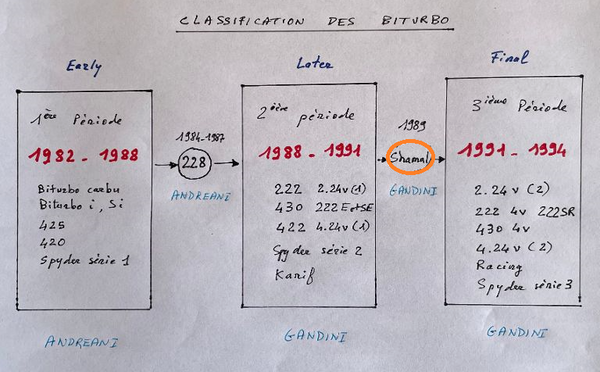 CLASSIFICATION DES BITURBO
Early
1ère Période
1982 - 1988
Biturbo carbu
Biturbo i, Si
425
420
Spyder série 1
ANDREANI
1984-1987
228
ANDREANI
Later
2ière période
1988 - 1991
222 2.24v (1)
430 222E+SE
422 4.24v (1)
Spyder série 2
Karif
GANDINI
1989
Shamal
GANDINI
Final
3ième Période
1991 - 1994
2.24v (2)
222 4v 222SR
430 4v
4.24v (2)
Racing
Spyder série 3
GANDINI